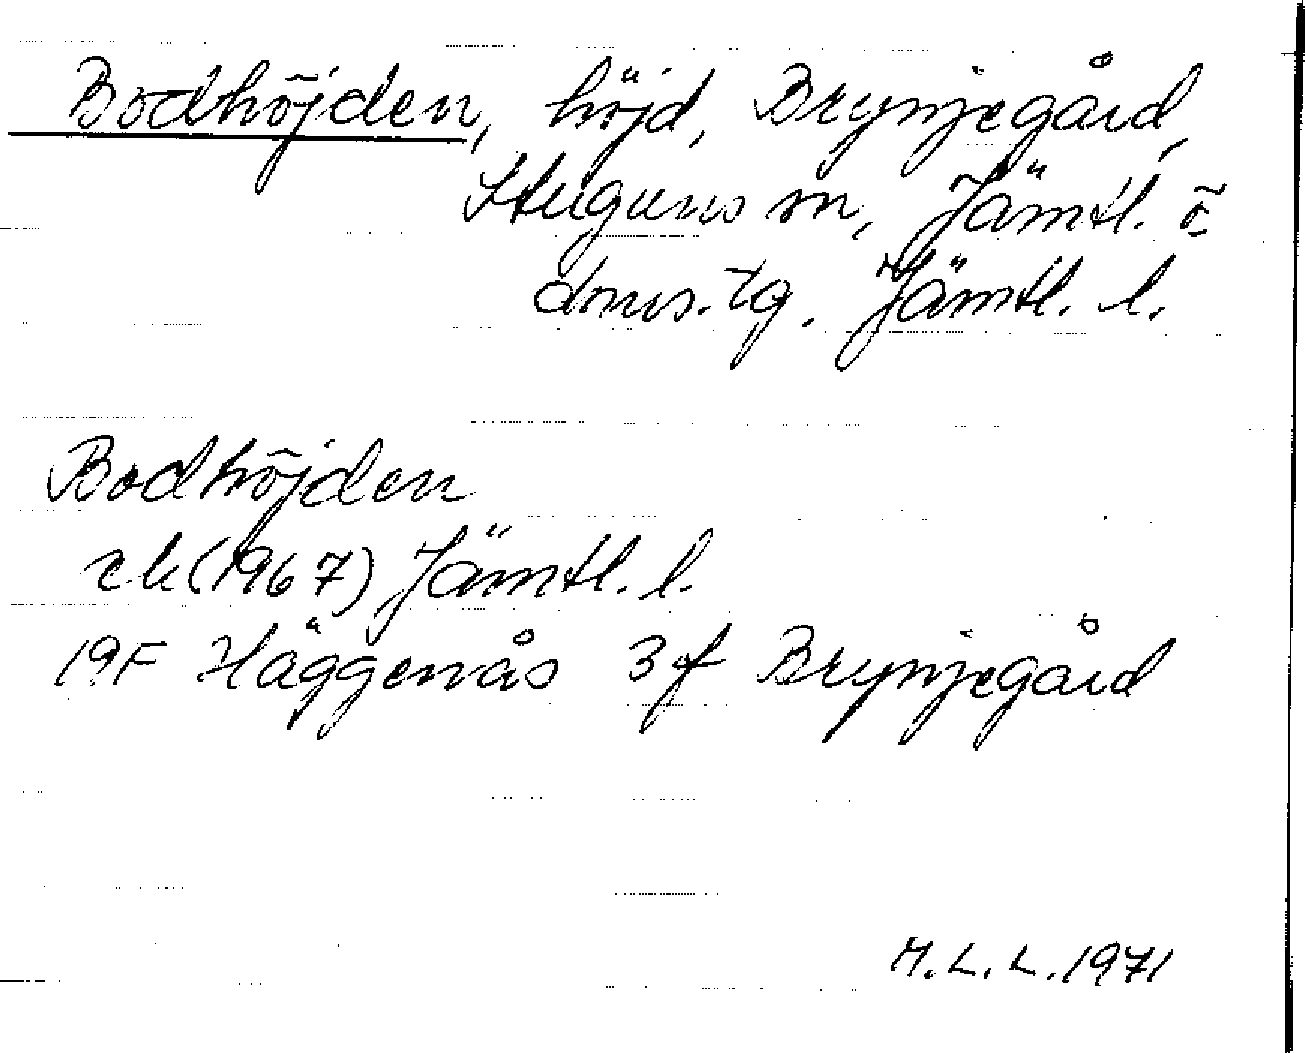 Bodhöjden, höjd, Brynjegård,
Stuguns sn, Jämtl. ö
dms.tg. Jämtl. l.
Bodhöjden
ek (1967) Jämtl. l.
19F Häggenås 3f Brynjegård
M.L.L. 1971